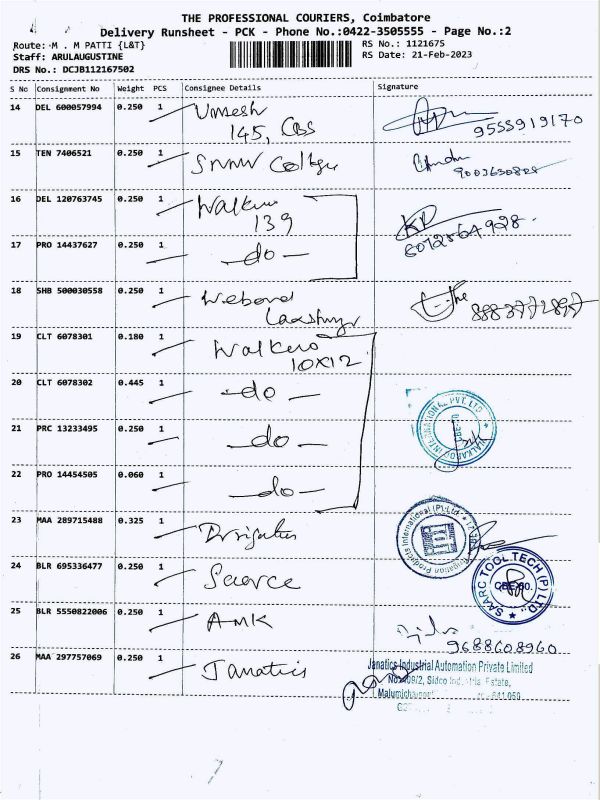 THE PROFESSIONAL COURIERS, Coimbatore
Delivery Runsheet - PCK - Phone No.:0422-3505555 - Page No.:2
Route: M . M PATTI {L&T}
RS No.: 1121675
Staff: ARULAUGUSTINE
RS Date: 21-Feb-2023
DRS No.: DCJB112167502
S No Consignment No Weight PCS Consignee Details Signature
14 DEL 600057994 0.250 1 Umesh
145, CBS
9555919170
15 TEN 7406521 0.250 1 SNMV College
16 DEL 120763745 0.250 1 Walkero
139
17 PRO 14437627 0.250 1 -do-
18 SHB 500030558 0.250 1
19 CLT 6078301 0.180 1 Walkero
10X12
20 CLT 6078302 0.445 1 -do-
21 PRC 13233495 0.250 1 -do-
22 PRO 14454505 0.060 1 -do-
INTERNATIONAL PVT. LTD
23 MAA 289715488 0.325 1
Irrigation Products International (P) Ltd
24 BLR 695336477 0.250 1
SAARC TOOL TECH (P) LTD.
25 BLR 5550822006 0.250 1 AMK
9688608960
26 MAA 297757069 0.250 1 Janatics
Janatics Industrial Automation Private Limited
Sidco Estate,